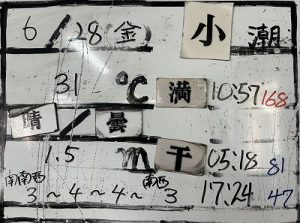 6/28(金) 小 潮
31 ℃ 満 10:57 168
晴/曇
1.5 m 干 05:18 81
南南西 南西
3~4~4~3 17:24 47